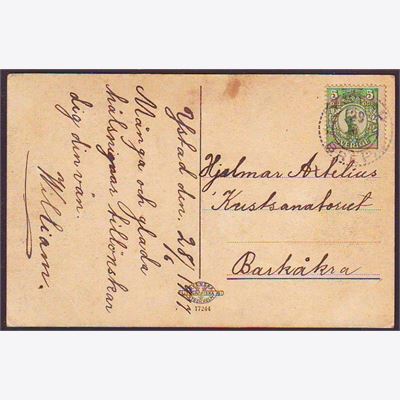 Ystad den. 28/6 1911
Många och glada
hälsningar tillönskar
dig din vän.
William.
5 5
SVERIGE
Hjelmar Axtelius
Kustsanatoriet
Barkåkra
17244